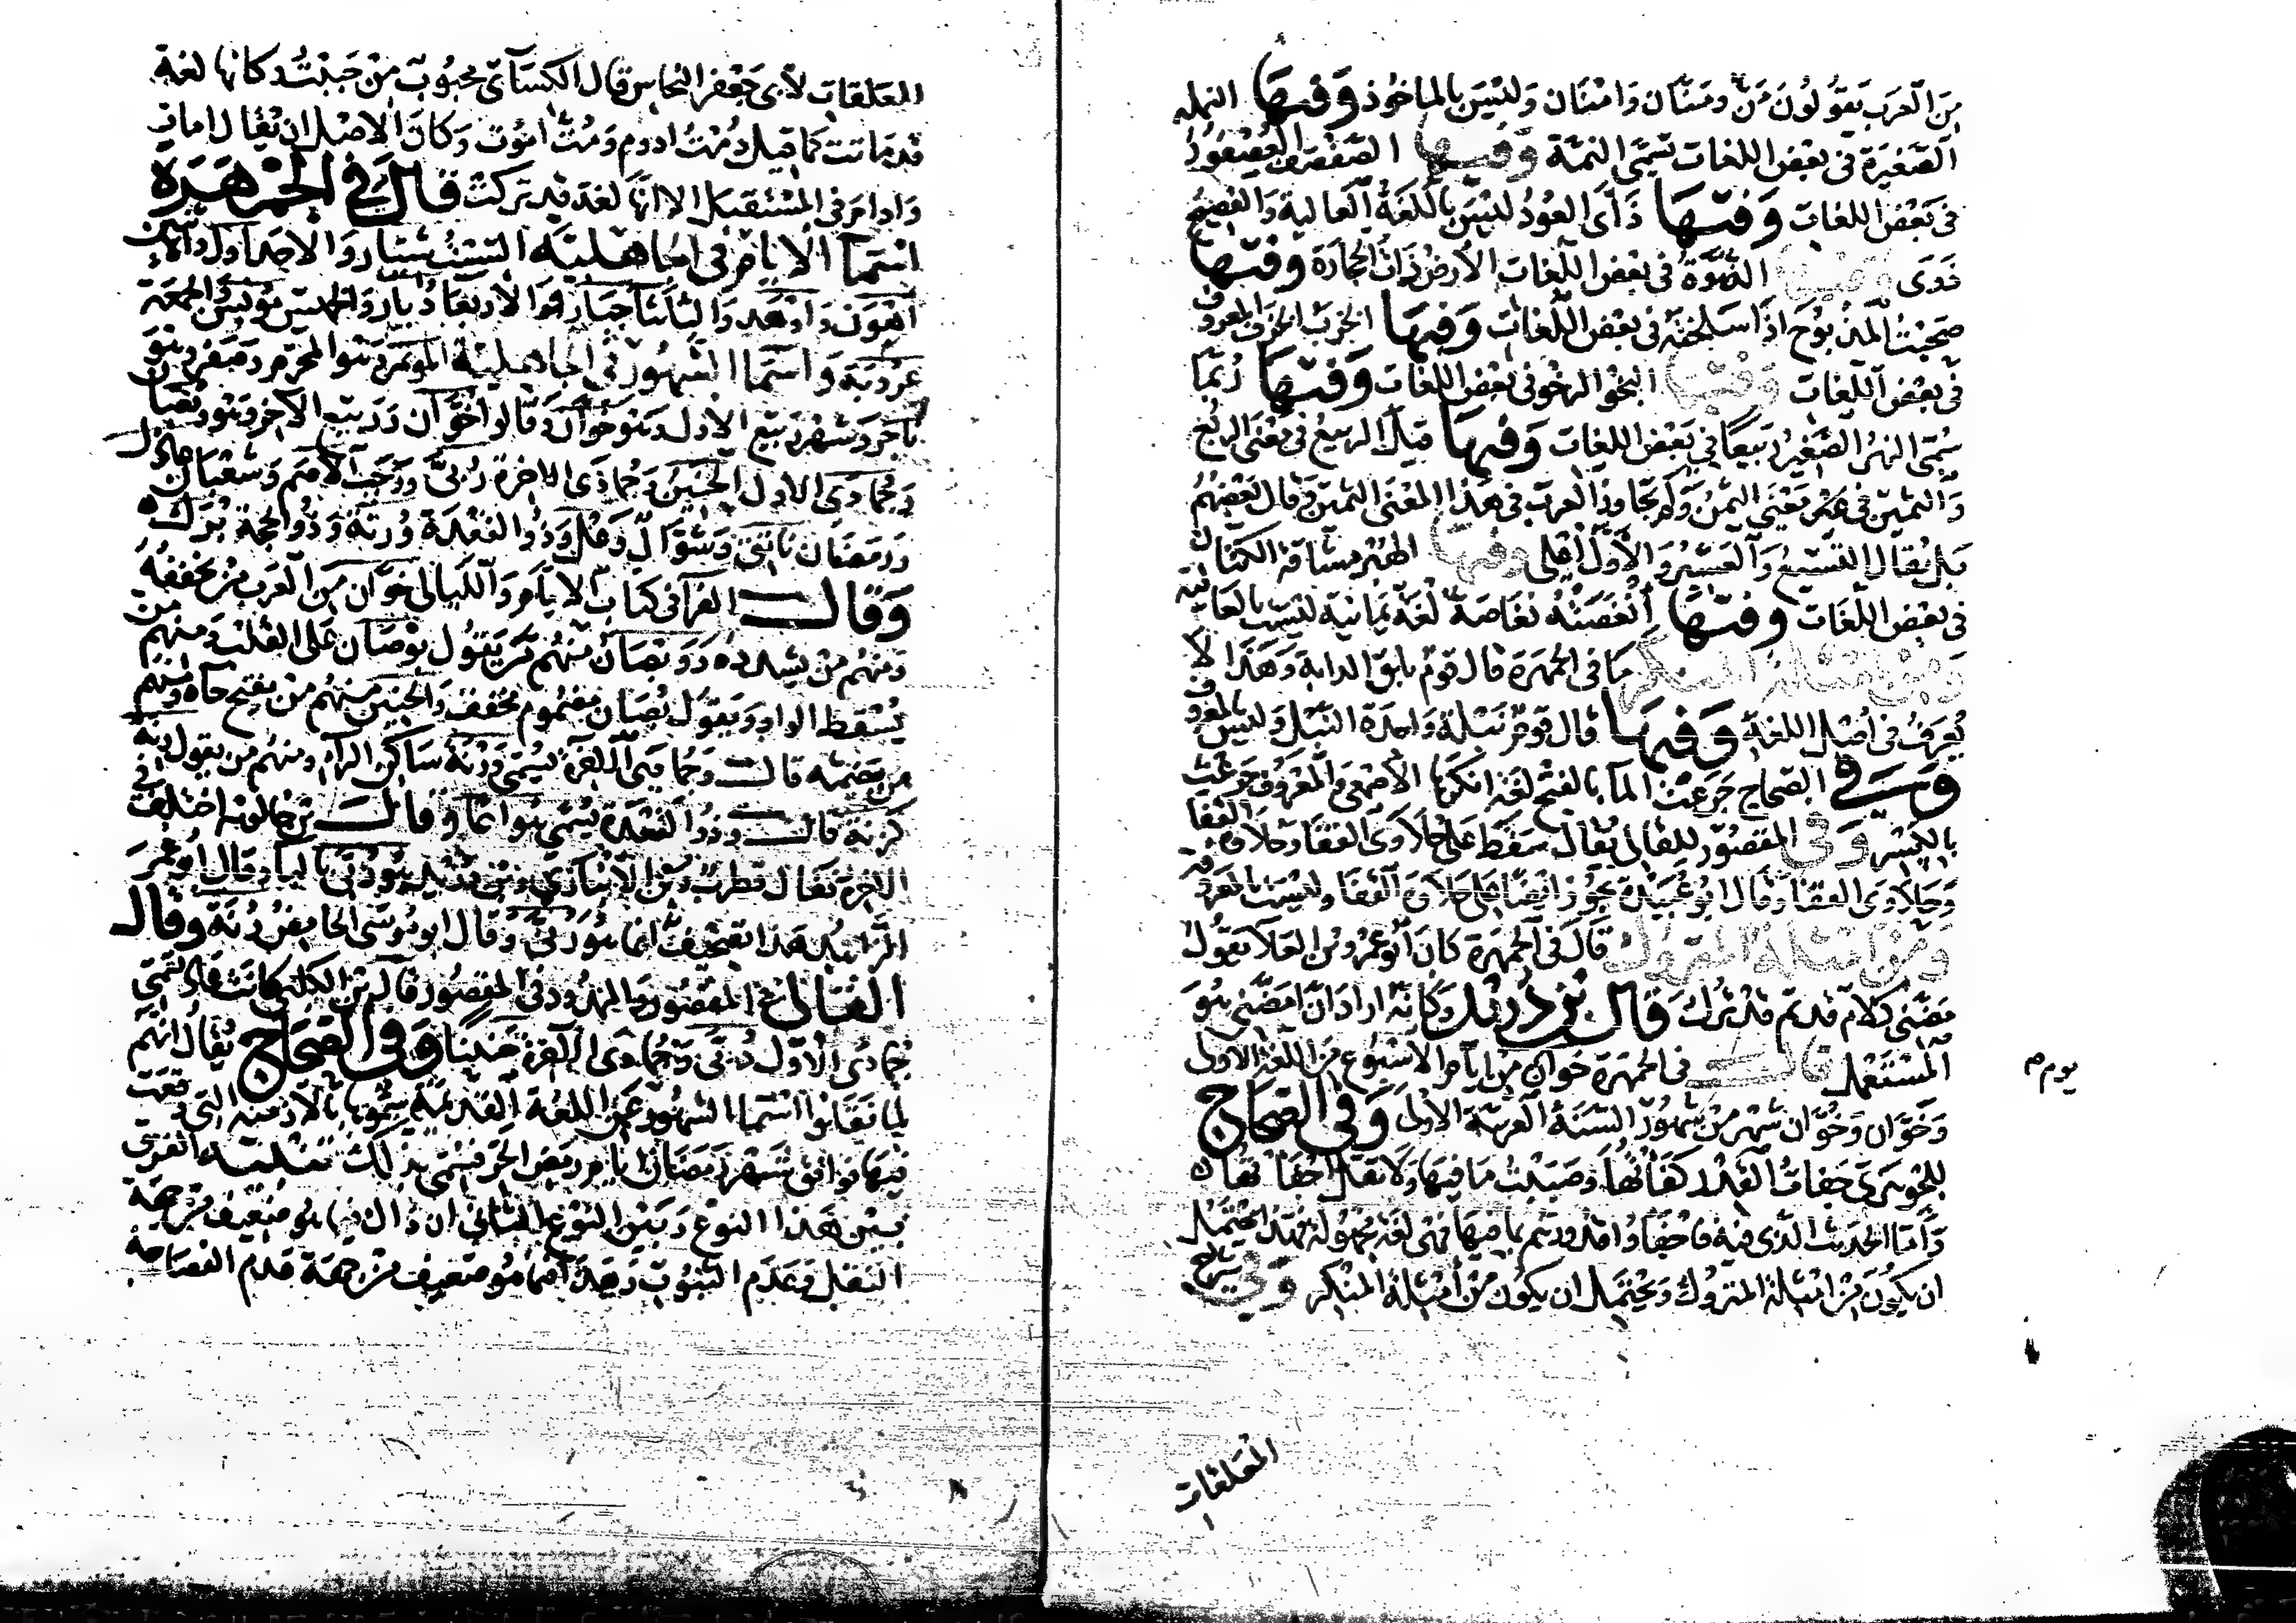 من العرب يقولون مَن ومنان وامنان وليس بالماخوذ وفيها النملة
الصغيرة في بعض اللغات تسمى النمة وفيها الصفصف العصفور
في بعض اللغات وفيها ذأى العود ليس باللغة العالية والفصيح
ذوى وفيها الذوة في بعض اللغات الأرض ذات الحجارة وفيها
المذبوح اذا سلخته في بعض اللغات وفيها الخزب الخزف المعروف
في بعض اللغات وفيها البخو الرخو في بعض اللغات وفيها ربما
سمى النهر الصغير ربيعا في بعض اللغات وفيها قيل الربيع في معنى الربع
والثمين في معنى الثمن ولم تجاوز العرب في هذا المعنى الثمين وقال بعضهم
بل يقال التسيع والعشير والأول اعلى وفيها مشاقة الكتان
في بعض اللغات وفيها لغة يمانية ليست بالعالية
ومن امثلة المنكر ما في الجمهرة قال قوم بلق الدابة وهذا لا
يعرف في اصل اللغة وفيها قال قوم نبلة واحدة النبل وليس بالمعروف
وفي الصحاح جرعت المآ بالفتح لغة انكرها الأصمعي والمعروف جرعت
بالكسر وفي المقصور للقالي يقال سقط على حلاوى القفا وحلاوة القفا
وحلاوى القفا وقال ابو عبيد يجوز ايضا على حلاوة القفا وليست بالمعروفة
ومن امثلة المتروك قال في الجمهرة كان ابو عمرو بن العلا يقول
مضني كلام قديم قد ترك قال بن دريد وكانه اراد ان امضني هو
المستعمل قال في الجمهرة خوان من ايام الاسبوع من اللغة الاولى
وخوان وخوان شهر من شهور السنة العربية الاولى وفي الصحاح
للجوهري جفات القدر كفاتها وصببت ما فيها ولا تقل اجفاتها
وأما الحديث الذي فيه فاجفاوا قدورهم بما فيها فهي لغة مجهولة فهذا يحتمل
ان يكون من امثلة المتروك ويحتمل ان يكون من أمثلة المنكر وفي شرح
يوم م
المعلقات
المعلقات لأبي جعفر النحاس قال الكسآئي محبوب من حببت وكانها لغة
قد ماتت كما قيل دمت ادوم ومت اموت وكان الاصل ان يقال امات
وادام في المستقبل الا انها لغة قد تركت قال في الجمهرة
اسما الايام في الجاهلية السبت شيار والاحد اول والاثنين
اهون واوهد والثلاثا جبار والأربعا دبار والخميس مونس والجمعة
عروبة واسما الشهور في الجاهلية الموتمر وهو المحرم وصفر وهو
ناجر وشهر ربيع الاول وهو خوان وقالوا خوان وربيع الآخر وهو وبصان
وجمادى الاول الحنين وجمادى الاخرة ربى ورجب الأصم وشعبان عاذل
ورمضان ناتق وشوال وعل وذو القعدة ورنة وذو الحجة برك
وقال الفرآ في كتاب الايام والليالي خوان من العرب من يخففه
ومنهم من يشدده ووبصان منهم من يقول بوصان على القلب ومنهم من
يسقط الواو ويقول بصان مضموم مخفف والحنين منهم من يفتح حآه ومنهم
من يضمه قال وجمادى الاخرة يسمى ورنة ساكن الرآ ومنهم من يقول رنة
كزنة قال وذو القعدة يسمى هواعا وقال بن خالويه اختلف في
الاخرة فقال قطرب وبن الأنباري وبن دريد هو ربى بالبا وقال ابو عمر
الزاهد هذا تصحيف انما هو رنى وقال ابو موسى الحامض رنة وقال
القالي في المقصور والممدود قال بن الكلبي كانت عاد تسمى
جمادى الأول رنى وجمادى الآخرة حنينا وفي الصحاح يقال انهم
لما نقلوا اسما الشهور عن اللغة القديمة سموها بالأزمنة التي وقعت
فيها فوافق شهر رمضان ايام رمض الحر فسمى بذلك تنبيه الفرق
بين هذا النوع وبين النوع الثاني ان ذاك فيما هو ضعيف من جهة
النقل وعدم الثبوت وهذا فيما هو ضعيف من جهة عدم الفصاحة